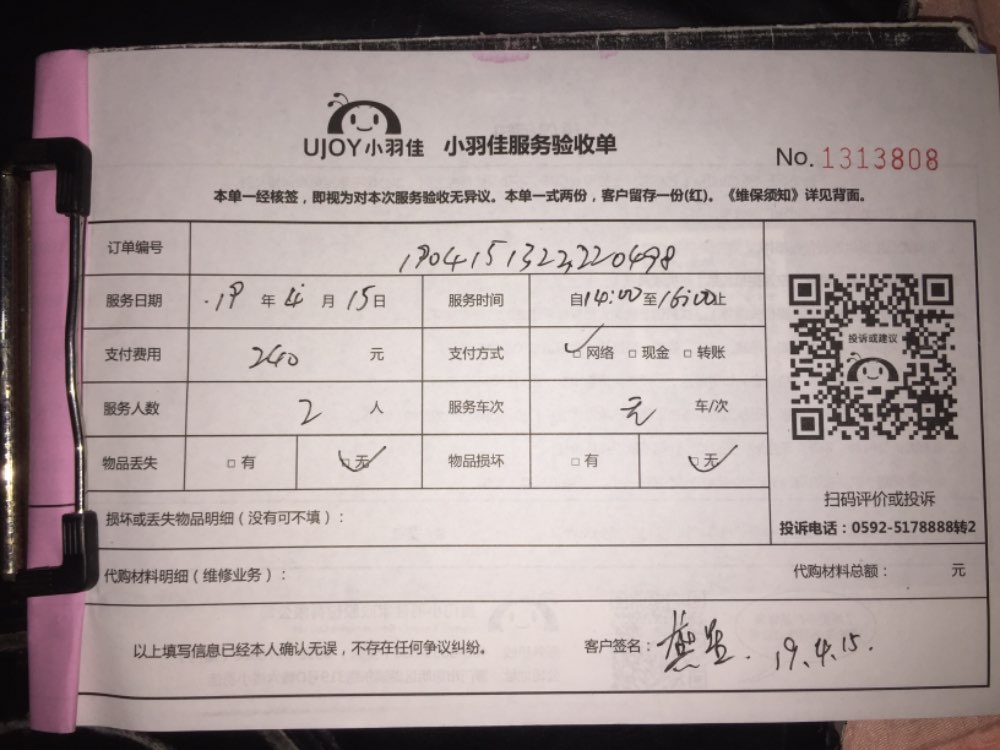 UJOY小羽佳 小羽佳服务验收单
No. 1313808
本单一经核签，即视为对本次服务验收无异议。本单一式两份，客户留存一份(红)。《维保须知》详见背面。
订单编号 1904151322220498
服务日期 19 年 4 月 15 日 服务时间 自14:00至16:00止
支付费用 240 元 支付方式 ✓□网络 □现金 □转账
投诉或建议
服务人数 2 人 服务车次 无 车/次
物品丢失 □有 ✓□无 物品损坏 □有 ✓□无
扫码评价或投诉
投诉电话：0592-5178888转2
损坏或丢失物品明细（没有可不填）：
代购材料明细（维修业务）： 代购材料总额： 元
以上填写信息已经本人确认无误，不存在任何争议纠纷。 客户签名： 19.4.15.